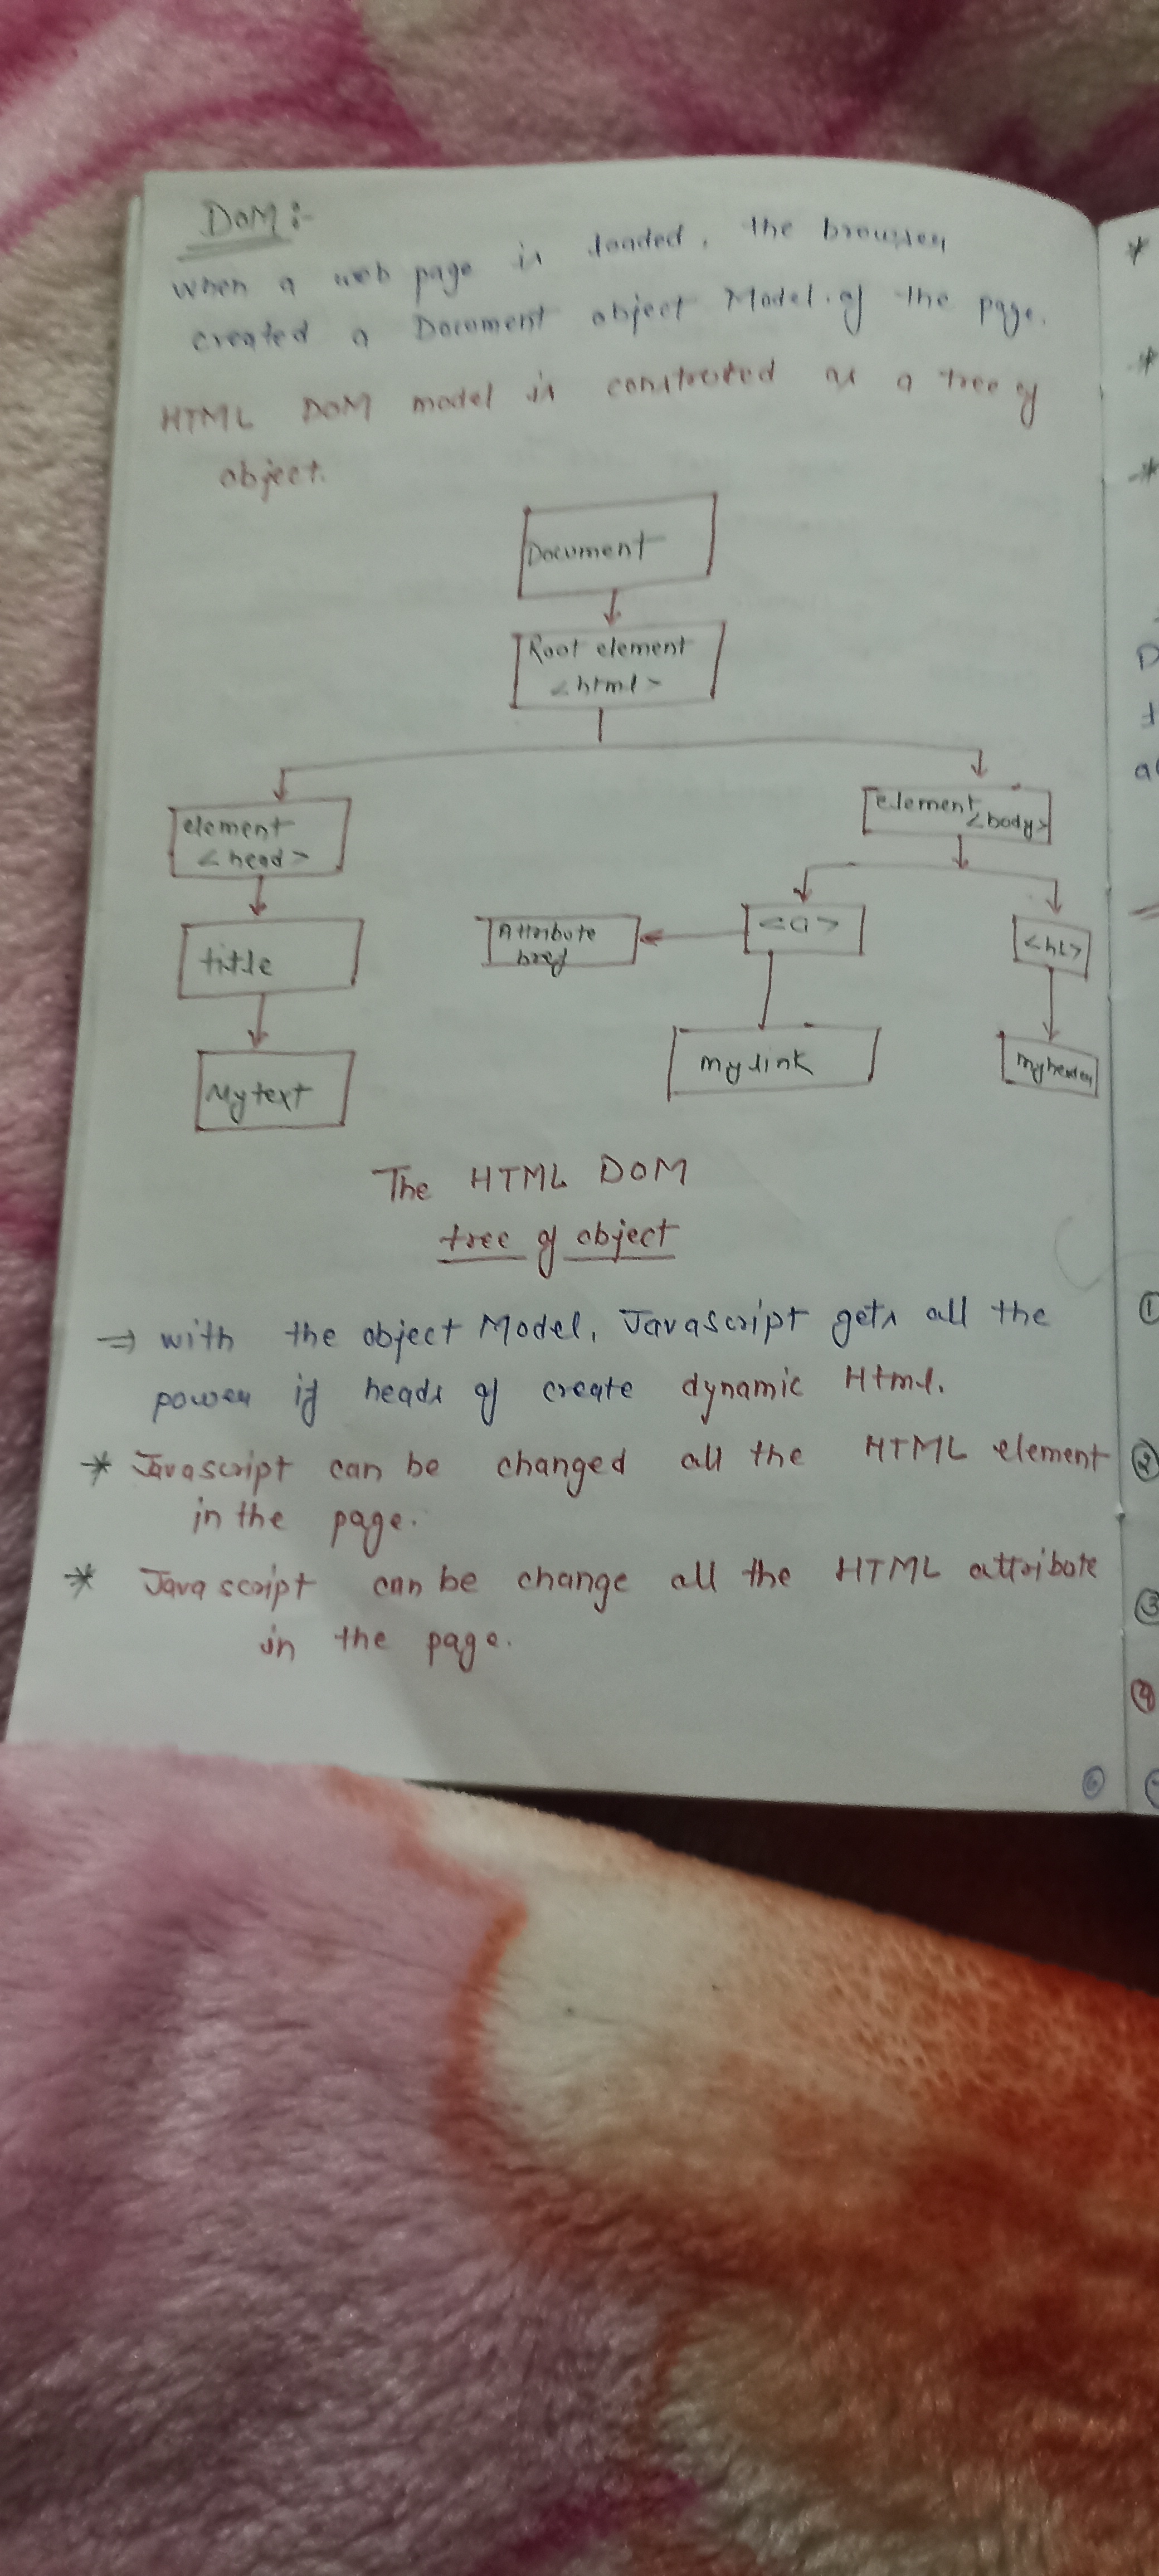 DOM :-
When a web page is loaded, the browser
created a Document object Model of the page.
HTML DOM model is constructed as a tree of
object.
Document
Root element
<html>
element
<head>
element
<body>
title
Attribute
href
<a>
<h1>
My text
my link
my header
The HTML DOM
tree of object
⇒ with the object Model, Javascript gets all the
power if heads of create dynamic Html.
* Javascript can be changed all the HTML element
in the page.
* Java script can be change all the HTML attribute
in the page.
6
*
*
*
D
1
2
3
4